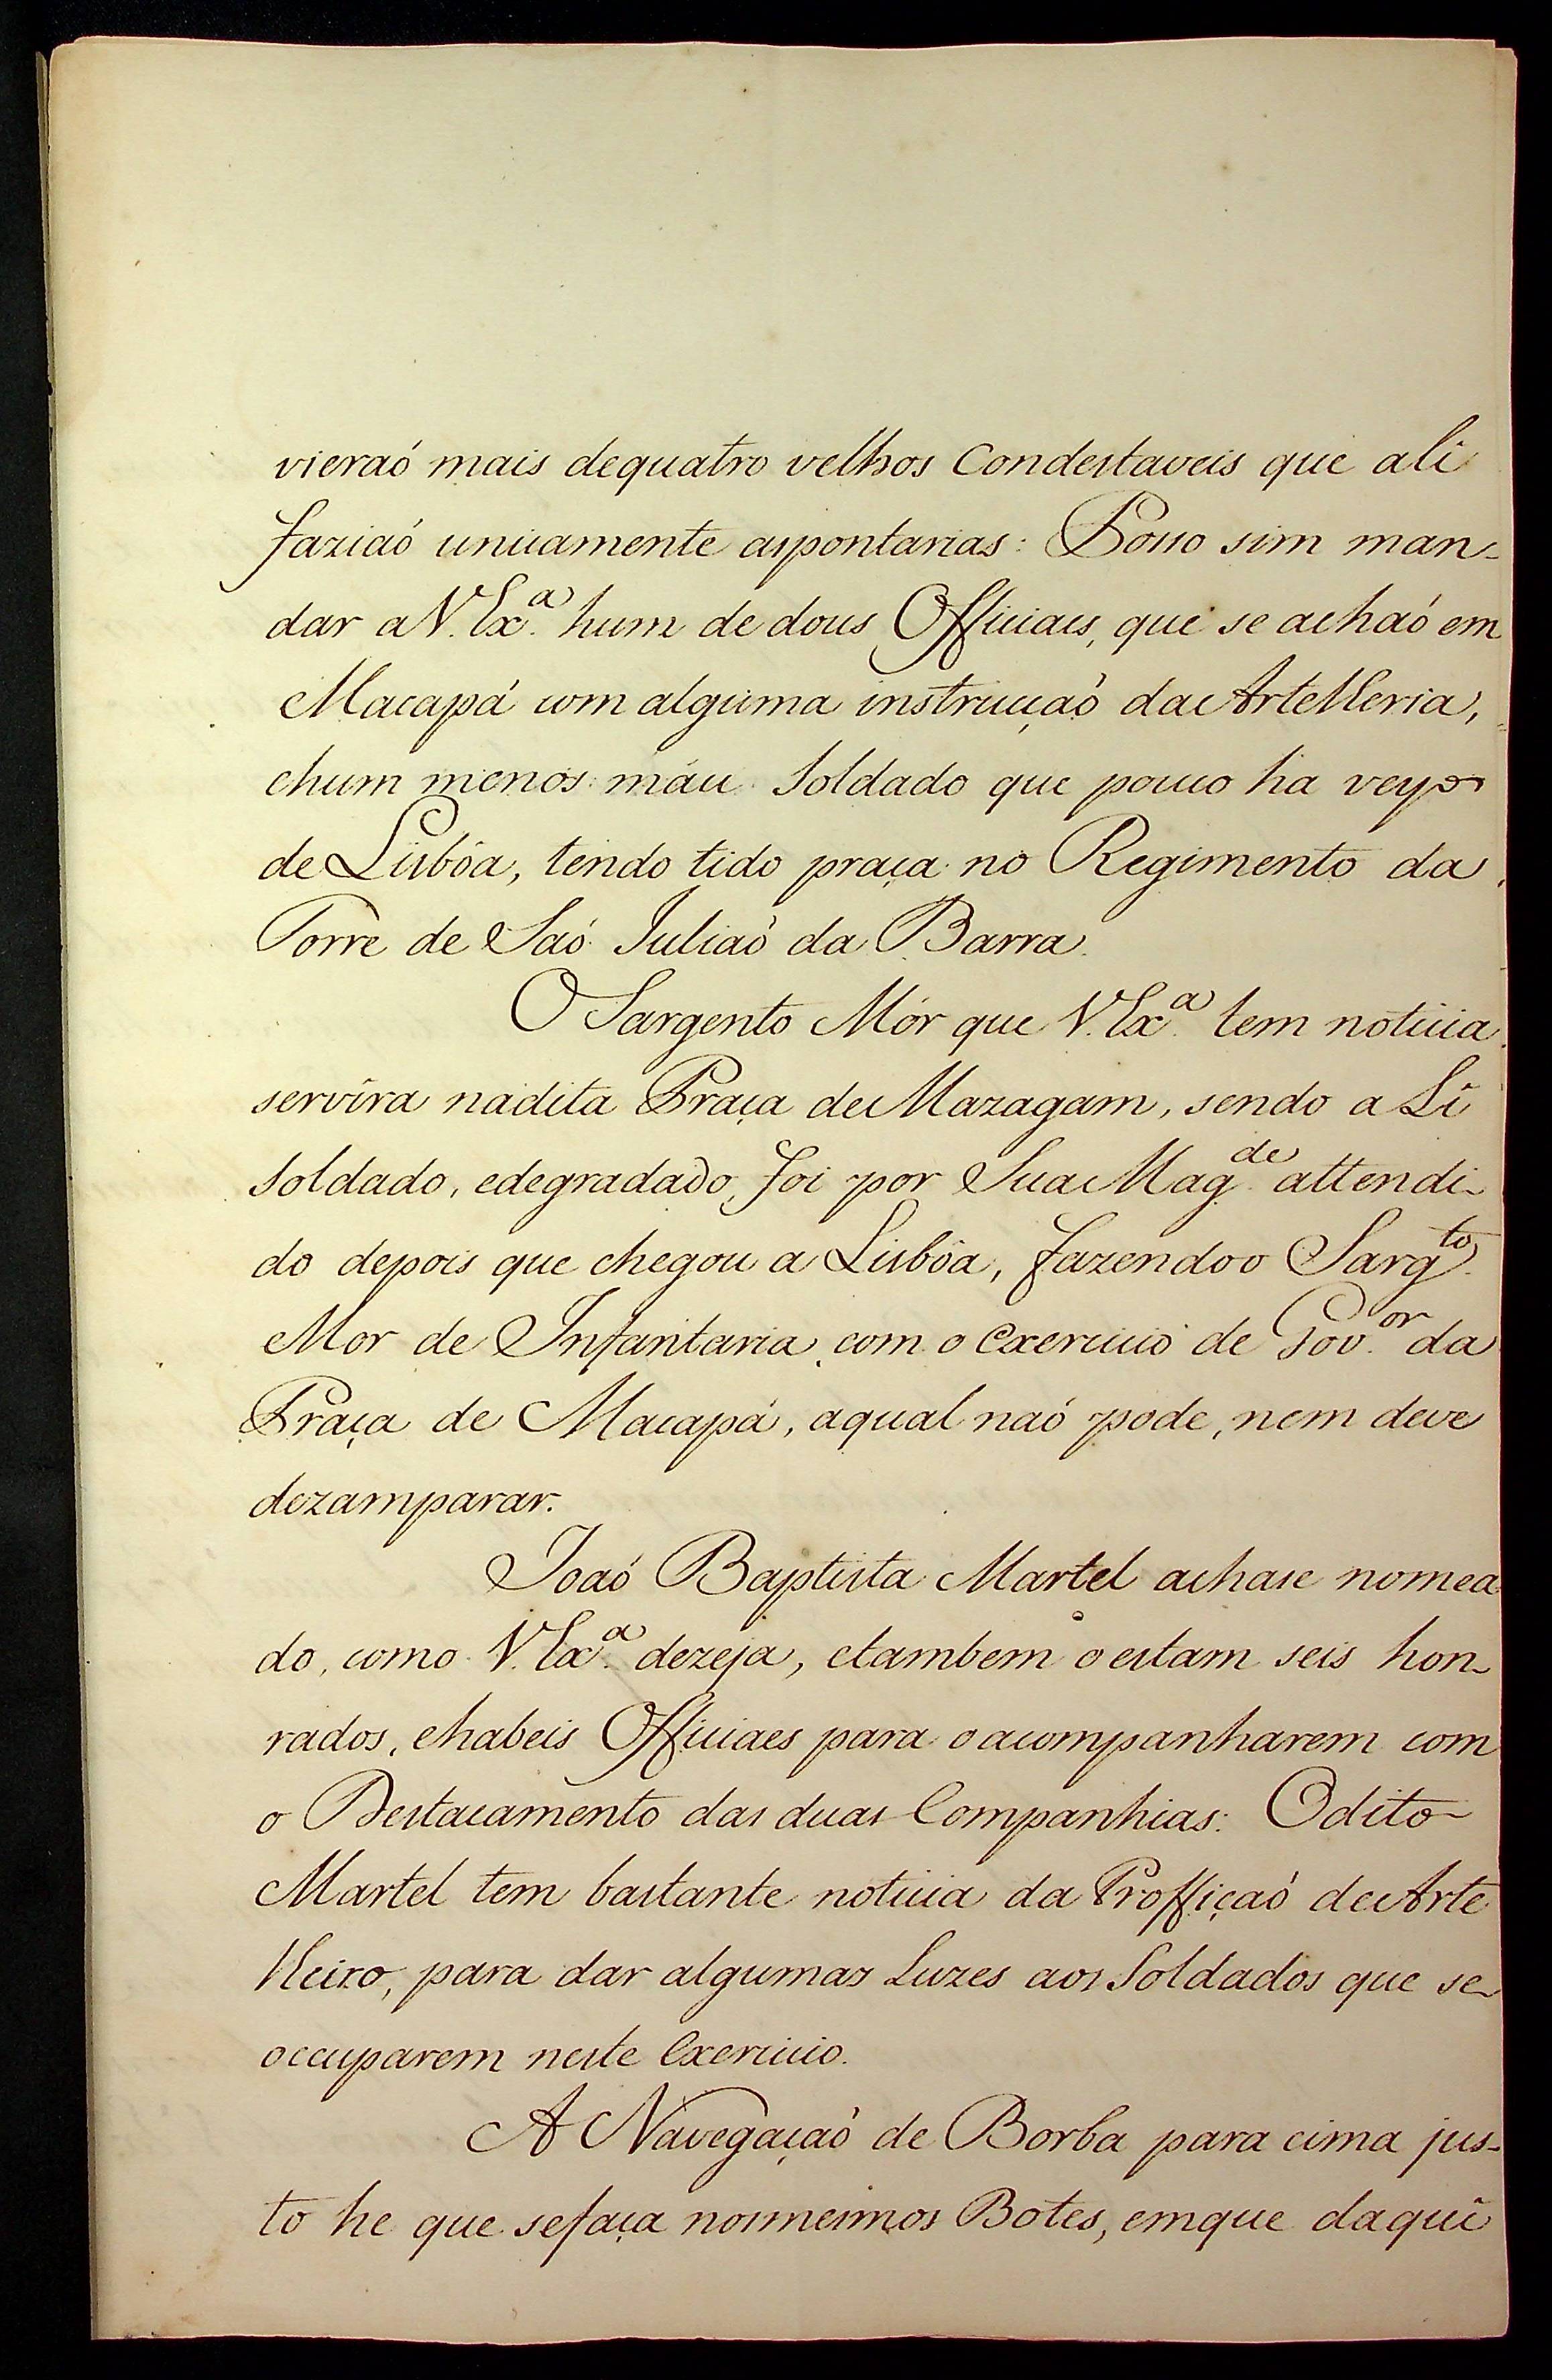 vieraó mais dequatro velhos Condestaveis que ali
faziaó unicamente aspontarias: Posso sim man-
dar a V. Exª. hum de dous Officiaes, que se achaó em
Macapá com alguma instrucçaó da Artelleria,
ehum menos máu Soldado que pouco ha veyo
de Lisbôa, tendo tido praça no Regimento da
Torre de Saó Juliaó da Barra.
O Sargento Mór que V. Exª. tem noticia
servira nadita Praça de Mazagam, sendo a Li
Soldado, edegradado, foi por Sua Mag.de attendi-
do depois que chegou a Lisbôa, fazendoo Sarg.to
Mor de Infantaria com o exercicio de Gov.or da
Praça de Macapá, aqual naó pode, nem deve
dezamparar.
Joaó Baptista Martel achase nomea
do, como V. Exª. dezeja, etambem o estam seis hon-
rados, ehabeis Officiaes para o acompanharem com
o Destacamento das duas Companhias: Odito
Martel tem bastante noticia da Proffiçaó de Arte
lleiro, para dar algumas Luzes aos Soldados que se
occuparem neste Exercicio.
A Navegaçaó de Borba para cima jus-
to he que sefaça nosmesmos Botes, emque daqui